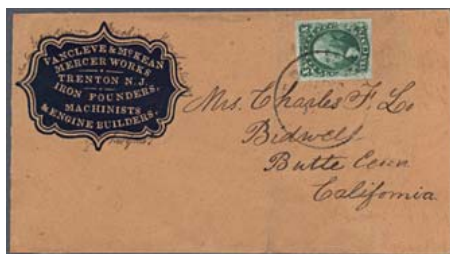 VANCLEVE & MCKEAN
MERCER WORKS
TRENTON N.J.
IRON FOUNDERS,
MACHINISTS
& ENGINE BUILDERS.
Mrs. Charles F. Lo
Bidwell
Butte Coun
California